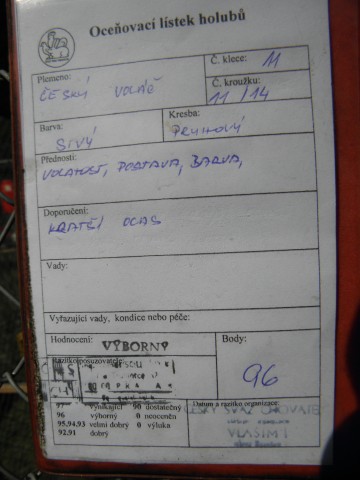 Oceňovací lístek holubů
Plemeno:
ČESKÝ VOLÁČ
Č. klece: 11
Č. kroužku:
11/14
Barva:
SIVÝ
Kresba:
PRUHOVÝ
Přednosti:
VOLATOST, POSTAVA, BARVA,
Doporučení:
KRATŠÍ OCAS
Vady:
Vyřazující vady, kondice nebo péče:
Hodnocení:
VÝBORNÝ
Body:
96
Razítko posuzovatele:
97 vynikající 90 dostatečný
96 výborný 0 neoceněn
95,94,93 velmi dobrý 0 výluka
92,91 dobrý
Datum a razítko organizace:
ČESKÝ SVAZ CHOVATELŮ
VLAŠIM 1